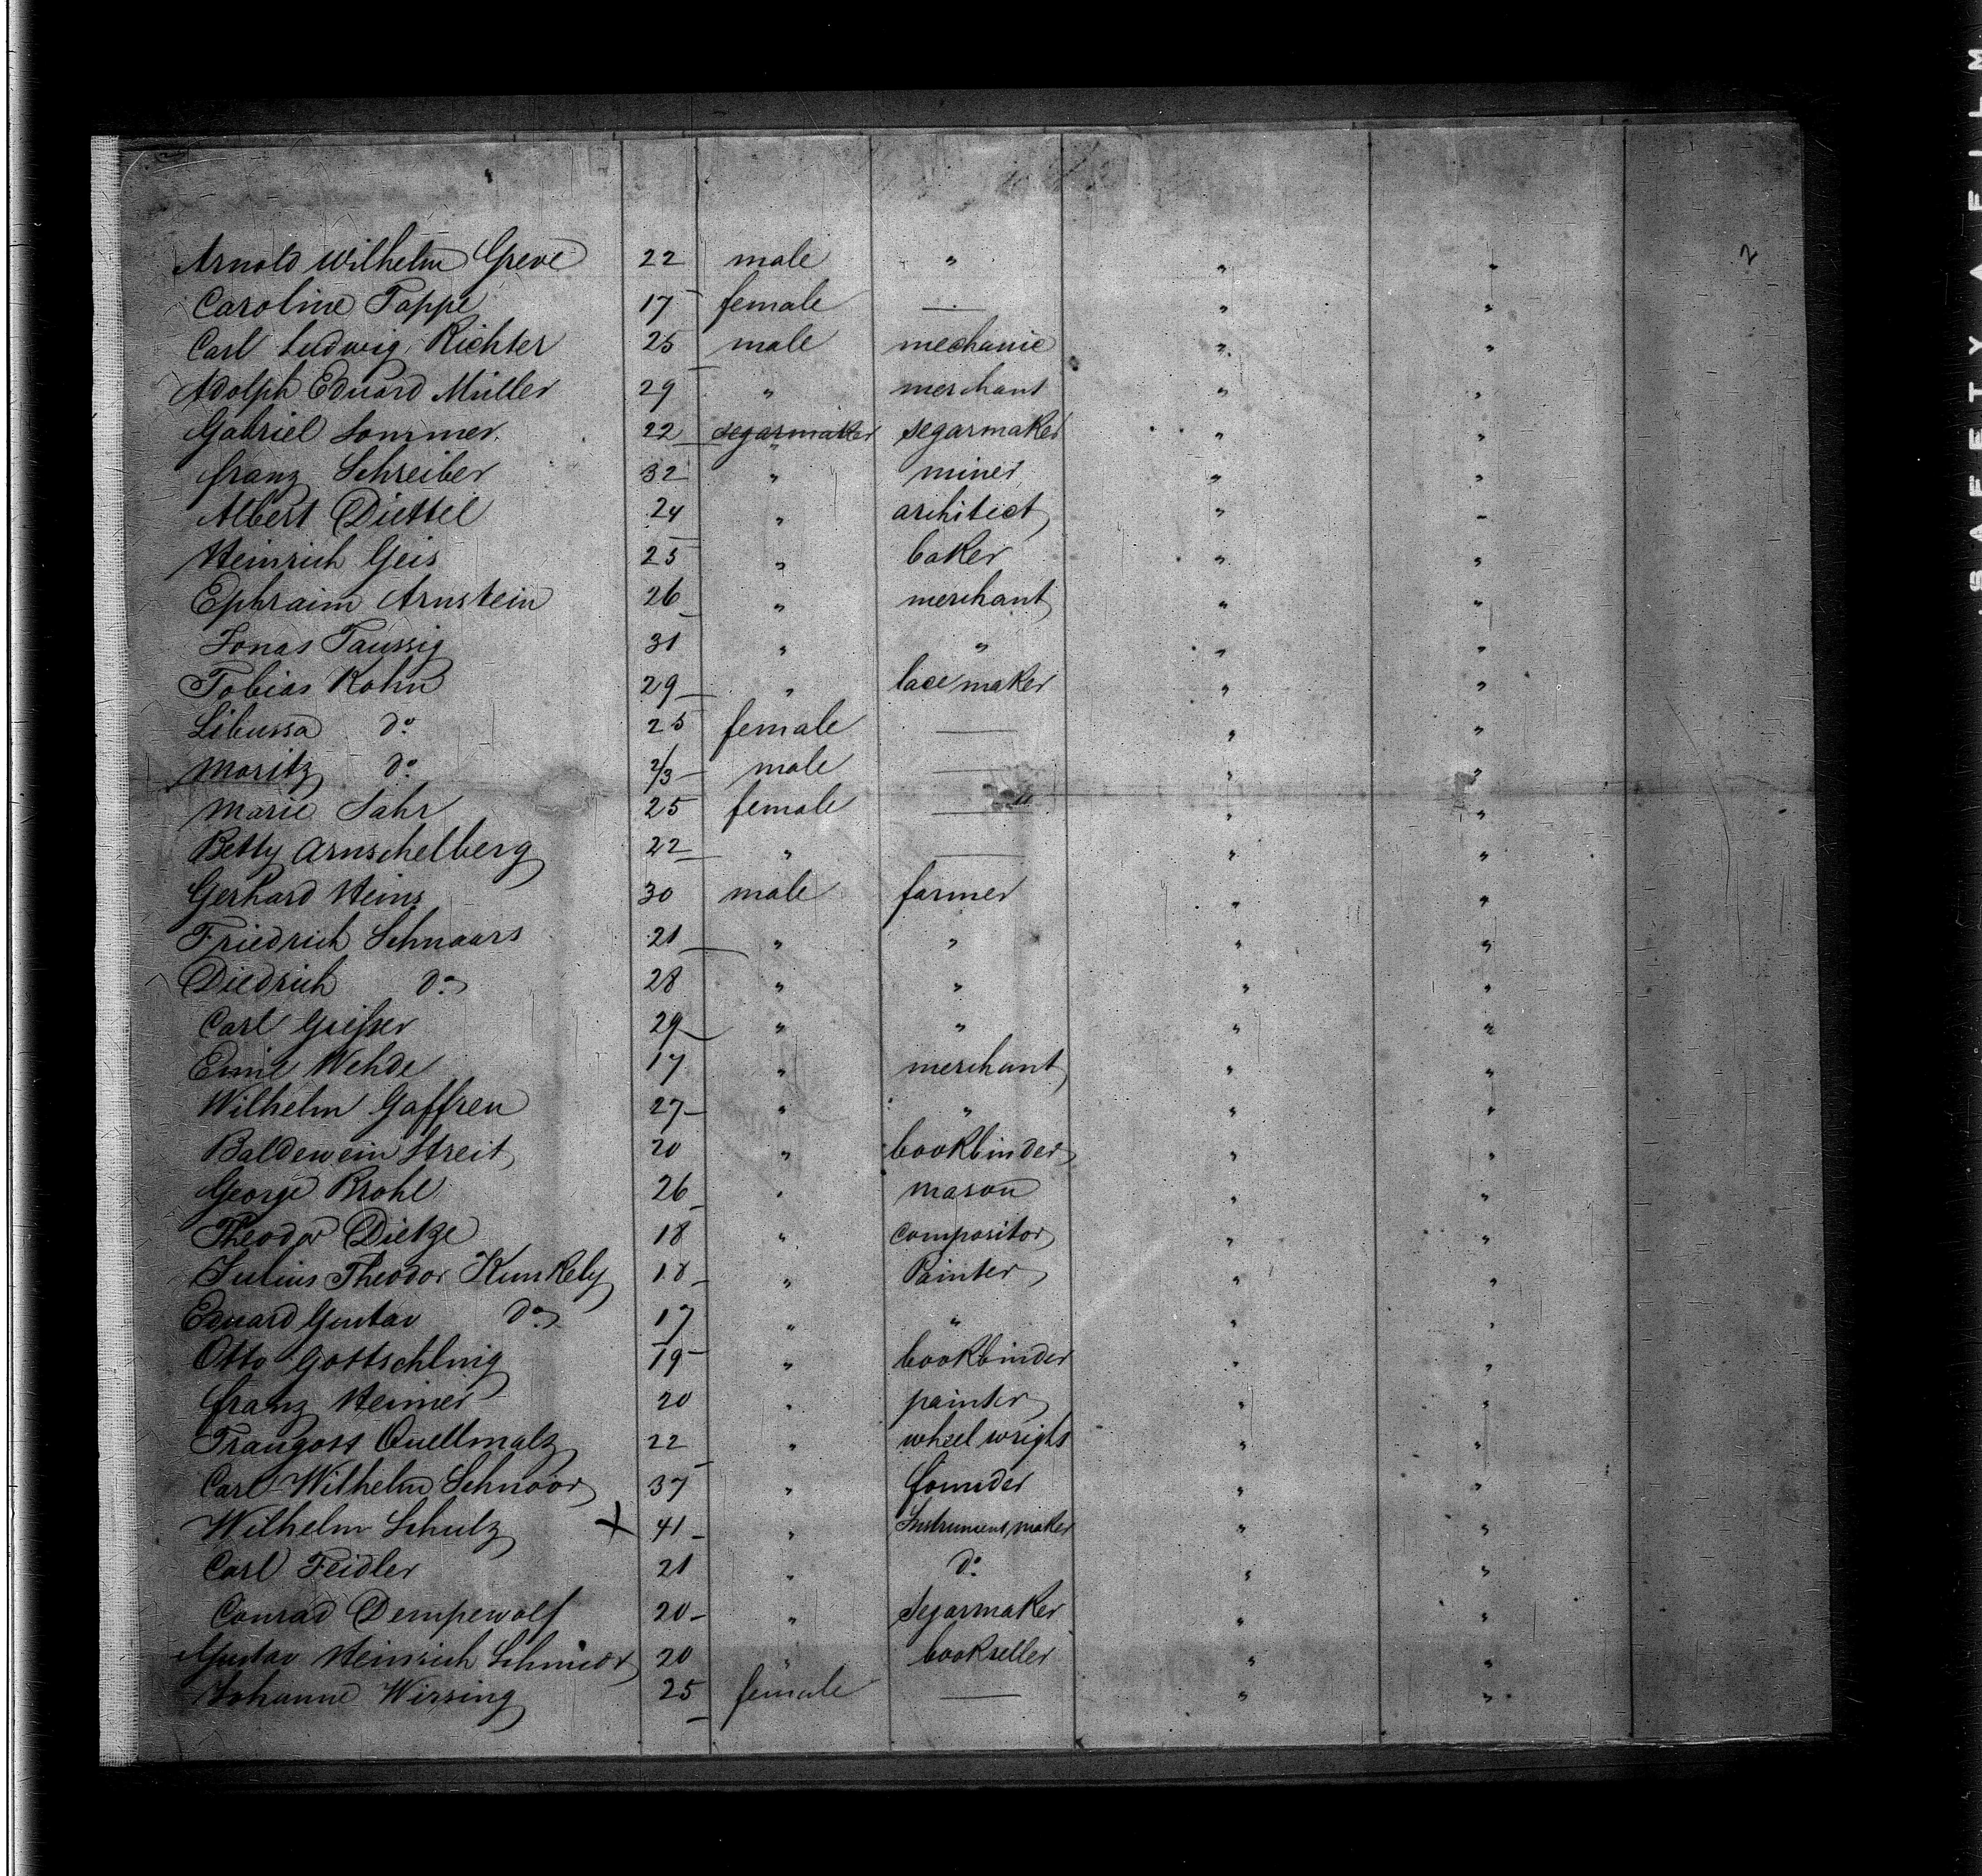 Arnold Wilhelm Greve 22 male " " " 2
Caroline Tappe 17 female — " "
Carl Ludwig Richter 25 male mechanic " "
Adolph Eduard Müller 29 " merchant " "
Gabriel Sommer 22 segarmaker segarmaker " "
Franz Schreiber 32 " miner " "
Albert Diettel 24 " architect " "
Heinrich Geis 25 " baker " "
Ephraim Arnstein 26 " merchant " "
Jonas Taussig 31 " " " "
Tobias Kohn 29 " lacemaker " "
Libussa do 25 female — " "
Moritz do 2/3 male — " "
Marie Sahr 25 female — " "
Betty Arnschelberg 22 " — " "
Gerhard Heins 30 male farmer " "
Friedrich Schnaars 21 " " " "
Diedrich do 28 " " " "
Carl 29 " " " "
Emil Wehde 17 " merchant " "
Wilhelm Gaffren 27 " " " "
Baldewein Streit 20 " bookbinder " "
George Brohl 26 " mason " "
Theodor Dietze 18 " compositor " "
Julius Theodor Kunkely 18 " Painter " "
Eduard Gustav do 17 " " " "
Otto Gottschling 19 " bookbinder " "
Franz Heimer 20 " painter " "
Traugott Quellmalz 22 " wheelwright " "
Carl Wilhelm Schnoor 37 " founder " "
Wilhelm Schulz X 41 " Instrument maker " "
Carl Feidler 21 " do " "
Conrad Dempewolf 20 " Segarmaker " "
Gustav Heinrich Schmidt 20 " bookseller " "
Johanne Wirsing 25 female — " "
SAFETY FILM